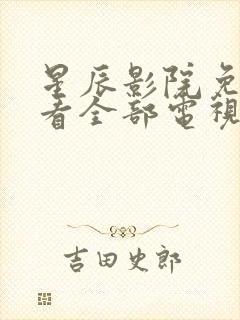 星辰影院免
看全部電視
吉田史郎